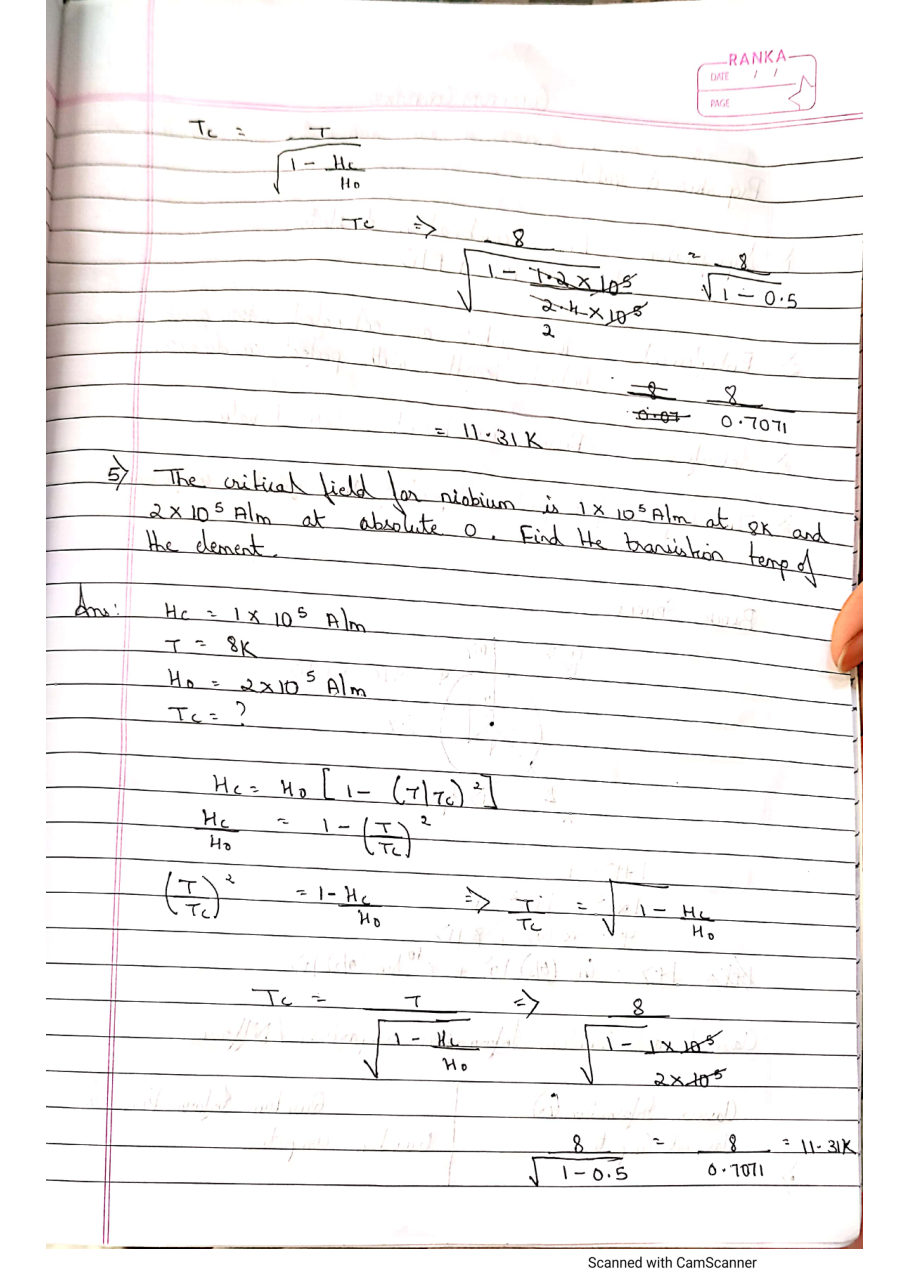 RANKA
DATE / /
PAGE
Tc = T / √(1 - Hc/Ho)
Tc ⇒ 8 / √(1 - 1.2 × 10^5 / 2.4 × 10^5) = 8 / √(1 - 0.5)
2
8/0.07 8/0.7071
= 11.31 K
5) The critical field for niobium is 1 × 10^5 A/m at 8K and
2 × 10^5 A/m at absolute 0. Find the transistion temp of
the element.
Ans: Hc = 1 × 10^5 A/m
T = 8K
Ho = 2×10^5 A/m
Tc = ?
Hc = Ho [1 - (T/Tc)^2]
Hc/Ho = 1 - (T/Tc)^2
(T/Tc)^2 = 1 - Hc/Ho ⇒ T/Tc = √(1 - Hc/Ho)
Tc = T / √(1 - Hc/Ho) ⇒ 8 / √(1 - 1 × 10^5 / 2 × 10^5)
8 / √(1 - 0.5) = 8 / 0.7071 = 11.31K
Scanned with CamScanner